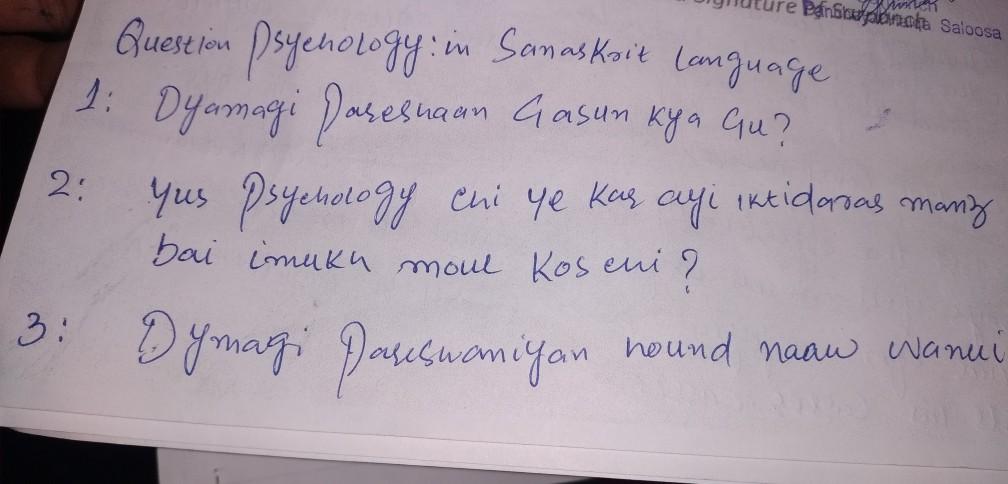 Signature
Saloosa
Question Psychology: in Sanaskrit language
1: Dyamagi Pareshaan Gasun kya Gu?
2: Yus Psychology chi ye kar ayi iktidaras manz
bai imukh moul Kos chi?
3: Dymagi Pareshaniyan hound naaw wanui